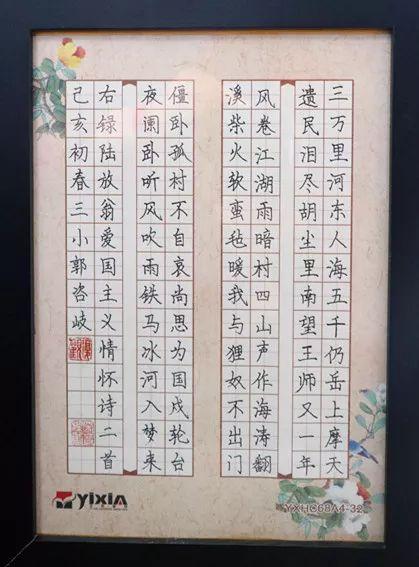 三万里河东人海五千仞岳上摩天
遗民泪尽胡尘里南望王师又一年
风卷江湖雨暗村四山声作海涛翻
溪柴火软蛮毡暖我与狸奴不出门
僵卧孤村不自哀尚思为国戍轮台
夜阑卧听风吹雨铁马冰河入梦来
右録陆放翁爱国主义情怀诗二首
己亥初春三小郭咨岐
yixiA
YXHC68A4-32